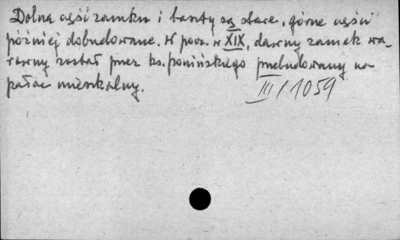 Dolna część zamku i baszty są stare, górne części
później dobudowane. W pocz. w XIX, dawny zamek wa-
rowny został przez ks. Ponińskiego przebudowany na
pałac mieszkalny.
III/1059